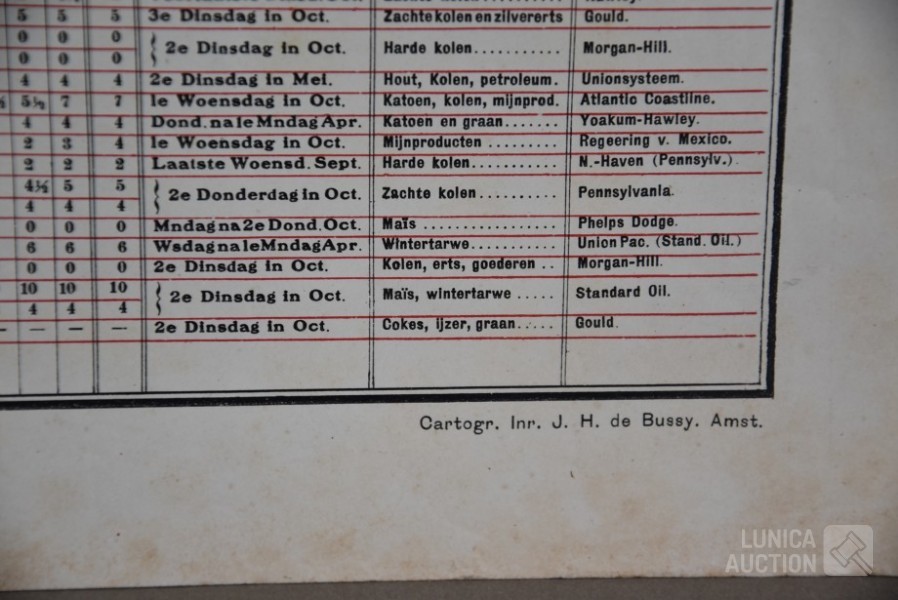 5 5 5 3e Dinsdag in Oct. Zachte kolen en zilvererts Gould.
0 0 0
2e Dinsdag in Oct. Harde kolen........... Morgan-Hill.
0 0 0
4 4 4 2e Dinsdag in Mei. Hout, Kolen, petroleum. Unionsysteem.
5½ 7 7 1e Woensdag in Oct. Katoen, kolen, mijnprod. Atlantic Coastline.
4 4 4 Dond. na 1e Mndag Apr. Katoen en graan....... Yoakum-Hawley.
2 3 4 1e Woensdag in Oct. Mijnproducten ......... Regeering v. Mexico.
2 2 2 Laatste Woensd. Sept. Harde kolen........... N.-Haven (Pennsylv.).
4½ 5 5
2e Donderdag in Oct. Zachte kolen.......... Pennsylvania.
4 4 4
0 0 0 Mndag na 2e Dond. Oct. Maïs ................. Phelps Dodge.
6 6 6 Wsdag na 1e Mndag Apr. Wintertarwe........... Union Pac. (Stand. Oil.)
0 0 0 2e Dinsdag in Oct. Kolen, erts, goederen .. Morgan-Hill.
10 10 10
2e Dinsdag in Oct. Maïs, wintertarwe ..... Standard Oil.
4 4 4
— — — 2e Dinsdag in Oct. Cokes, ijzer, graan..... Gould.
Cartogr. Inr. J. H. de Bussy. Amst.
LUNICA
AUCTION